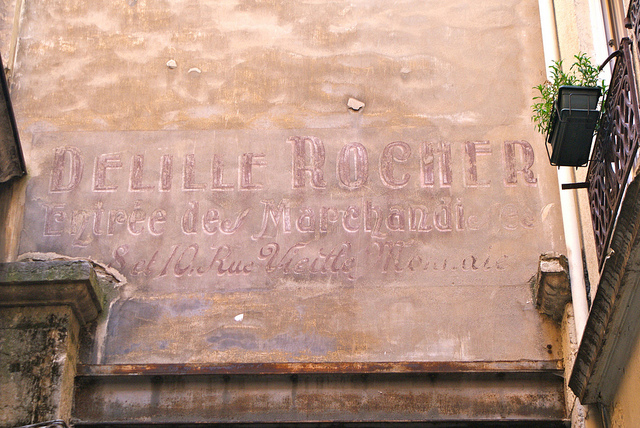 DELILLE ROCHER
Entrée des Marchandises
8 et 10, Rue Vieille Monnaie